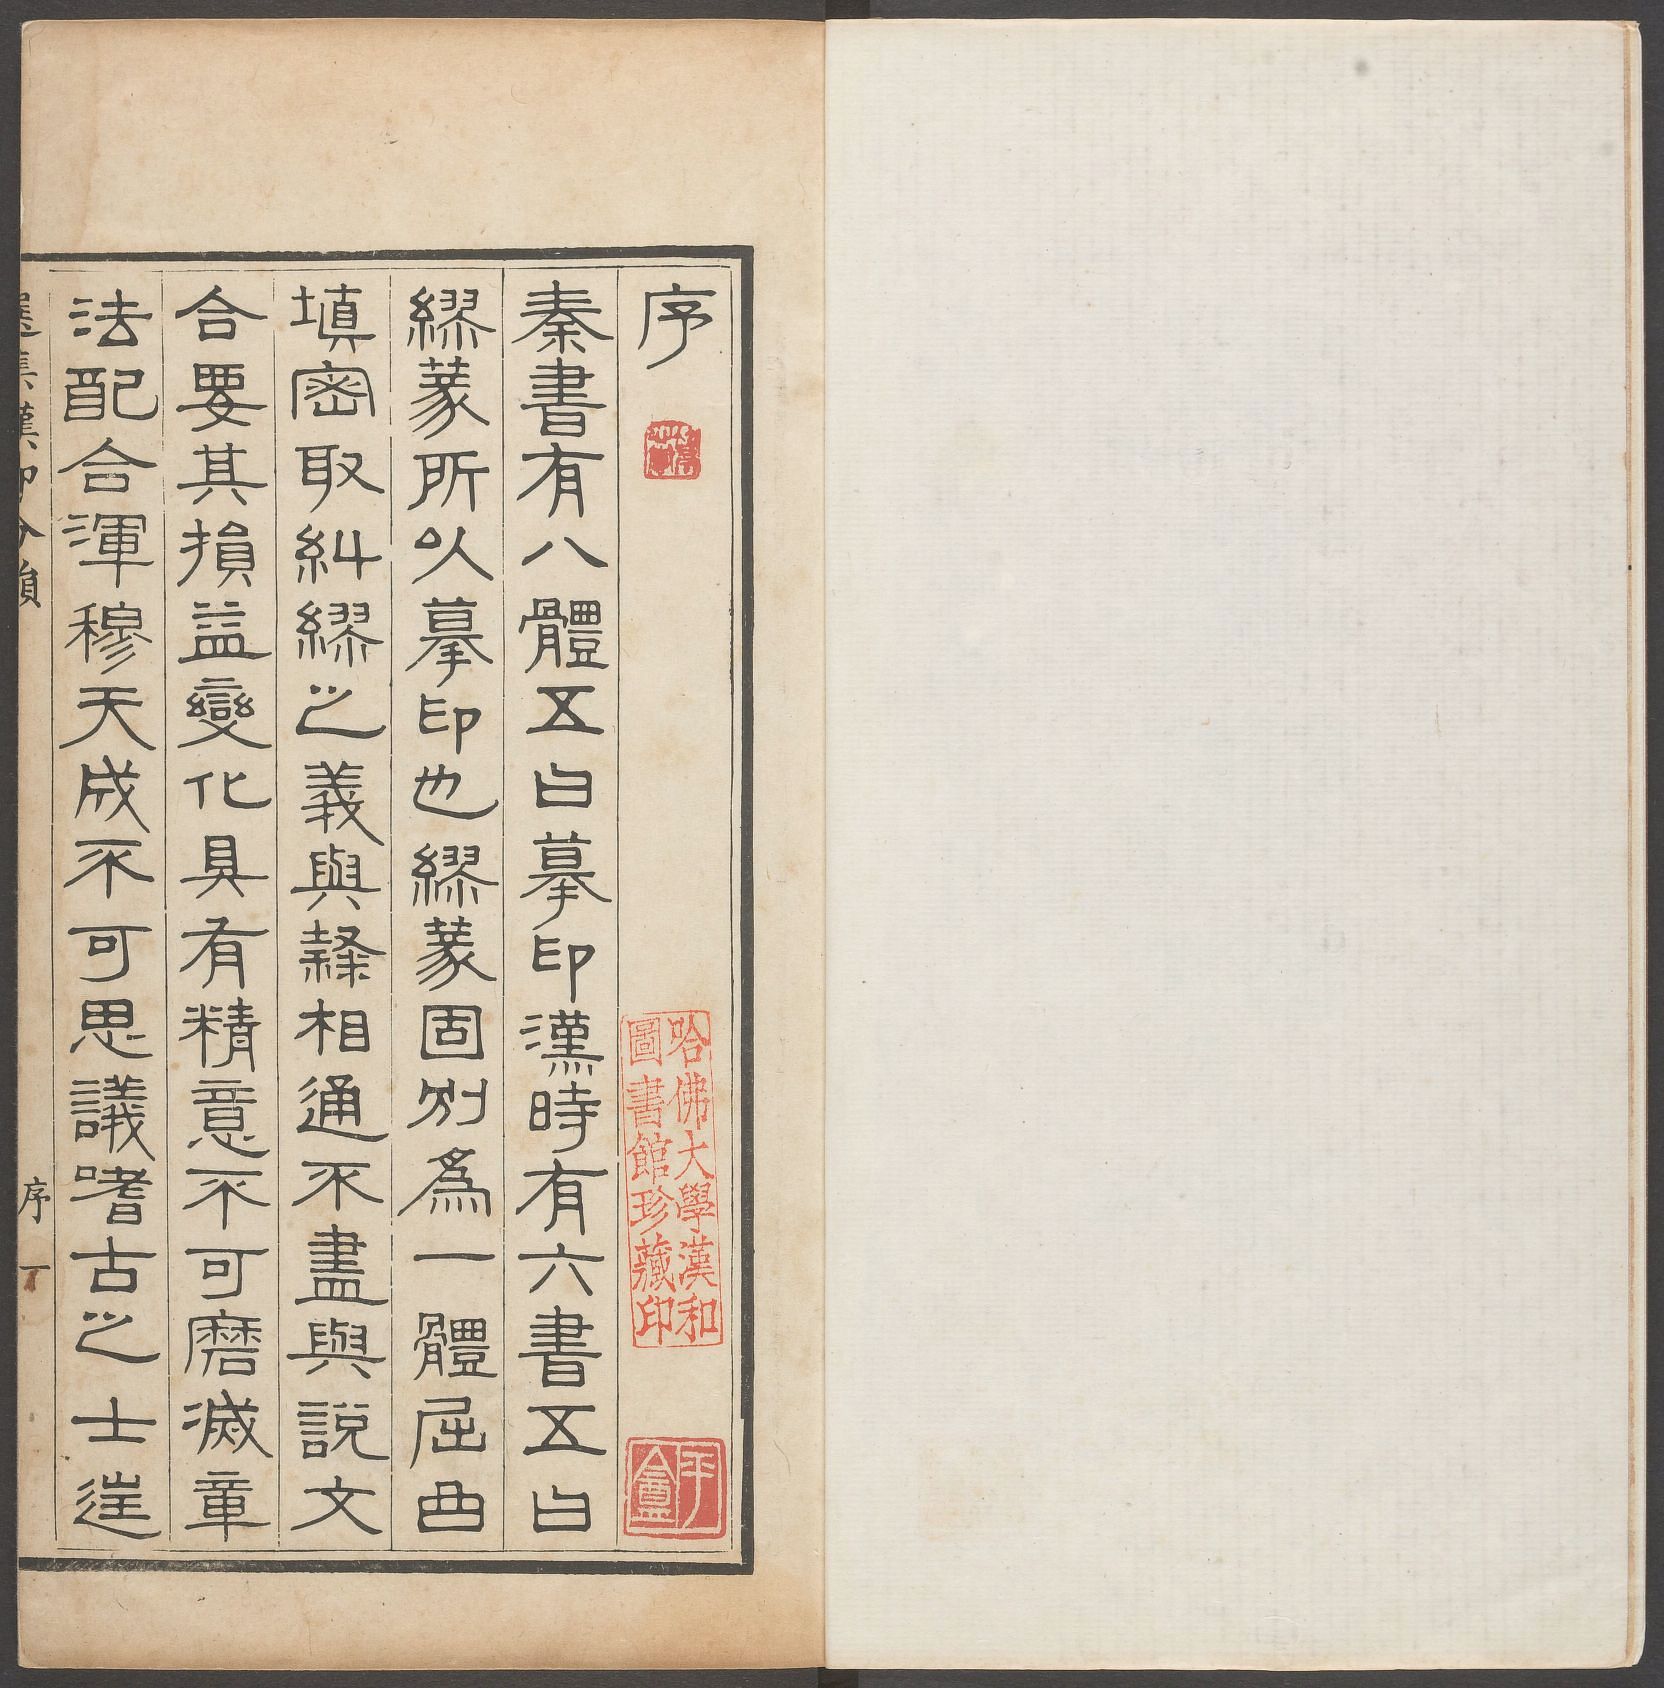 序
秦書有八體五曰摹印漢時有六書五曰
繆篆所以摹印也繆篆固別為一體屈曲
填密取糾繆之義與隸相通不盡與說文
合要其損益變化具有精意不可磨滅章
法配合渾穆天成不可思議嗜古之士往
選集漢印分韻
序
一
哈佛大學漢和
圖書館珍藏印
平盦